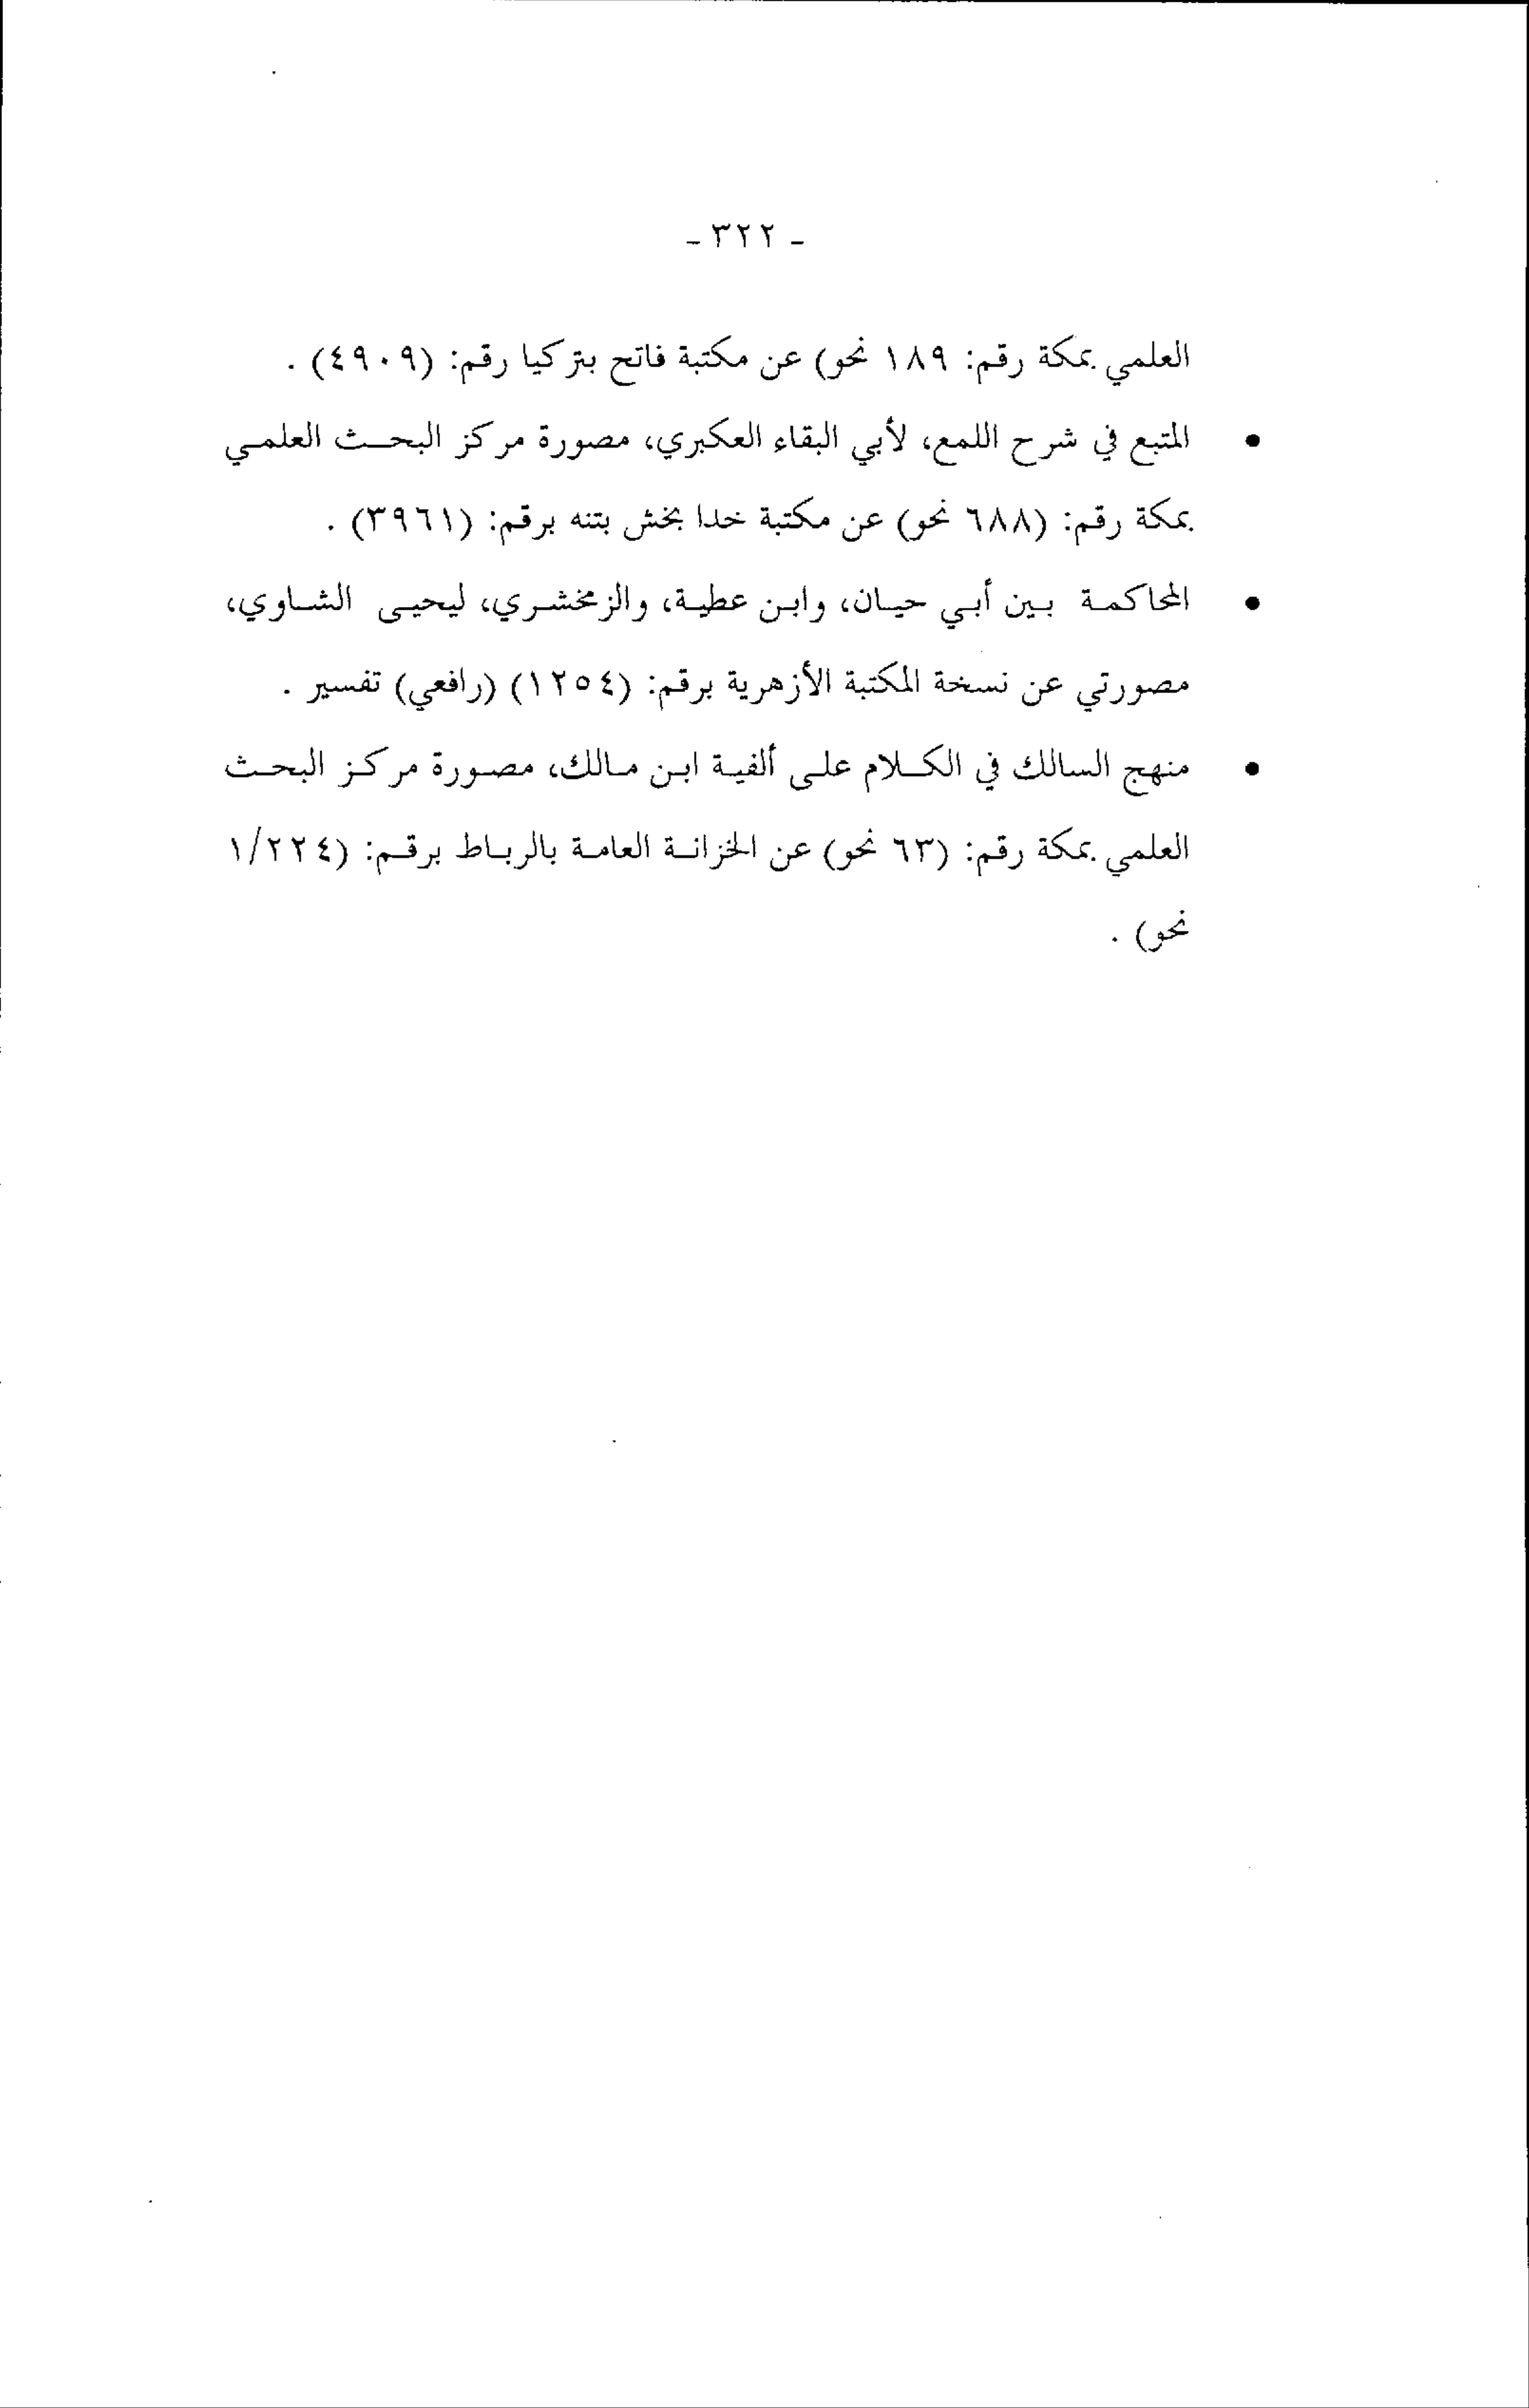 - ٣٢٢ -
العلمي بمكة رقم: ١٨٩ نحو) عن مكتبة فاتح بتركيا رقم: (٤٩٠٩) .
● المتبع في شرح اللمع، لأبي البقاء العكبري، مصورة مركز البحث العلمي
بمكة رقم: (٦٨٨ نحو) عن مكتبة خدا بخش بتنه برقم: (٣٩٦١) .
● المحاكمة بين أبي حيان، وابن عطية، والزمخشري، ليحيى الشاوي،
مصورتي عن نسخة المكتبة الأزهرية برقم: (١٢٥٤) (رافعي) تفسير .
● منهج السالك في الكلام على ألفية ابن مالك، مصورة مركز البحث
العلمي بمكة رقم: (٦٣ نحو) عن الخزانة العامة بالرباط برقم: (١/٢٢٤
نحو) .